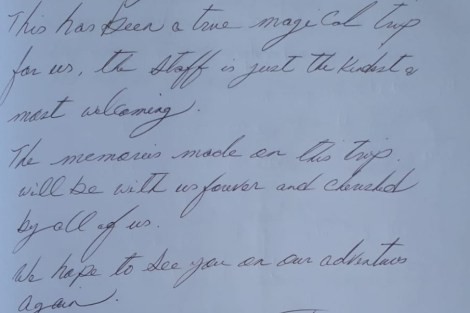 This has been a true magical trip
for us, the staff is just the kindest &
most welcoming.
The memories made on this trip.
will be with us forever and cherished
by all of us.
We hope to see you on our adventures
again.